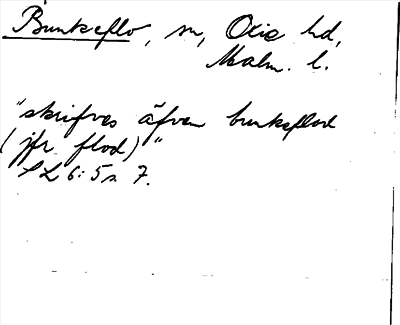 Bunkeflo, sn, Oxie hd,
Malm. l.
"skrifves äfven bunkeflod
(jfr flod)"
SL 6:5 s. 7.